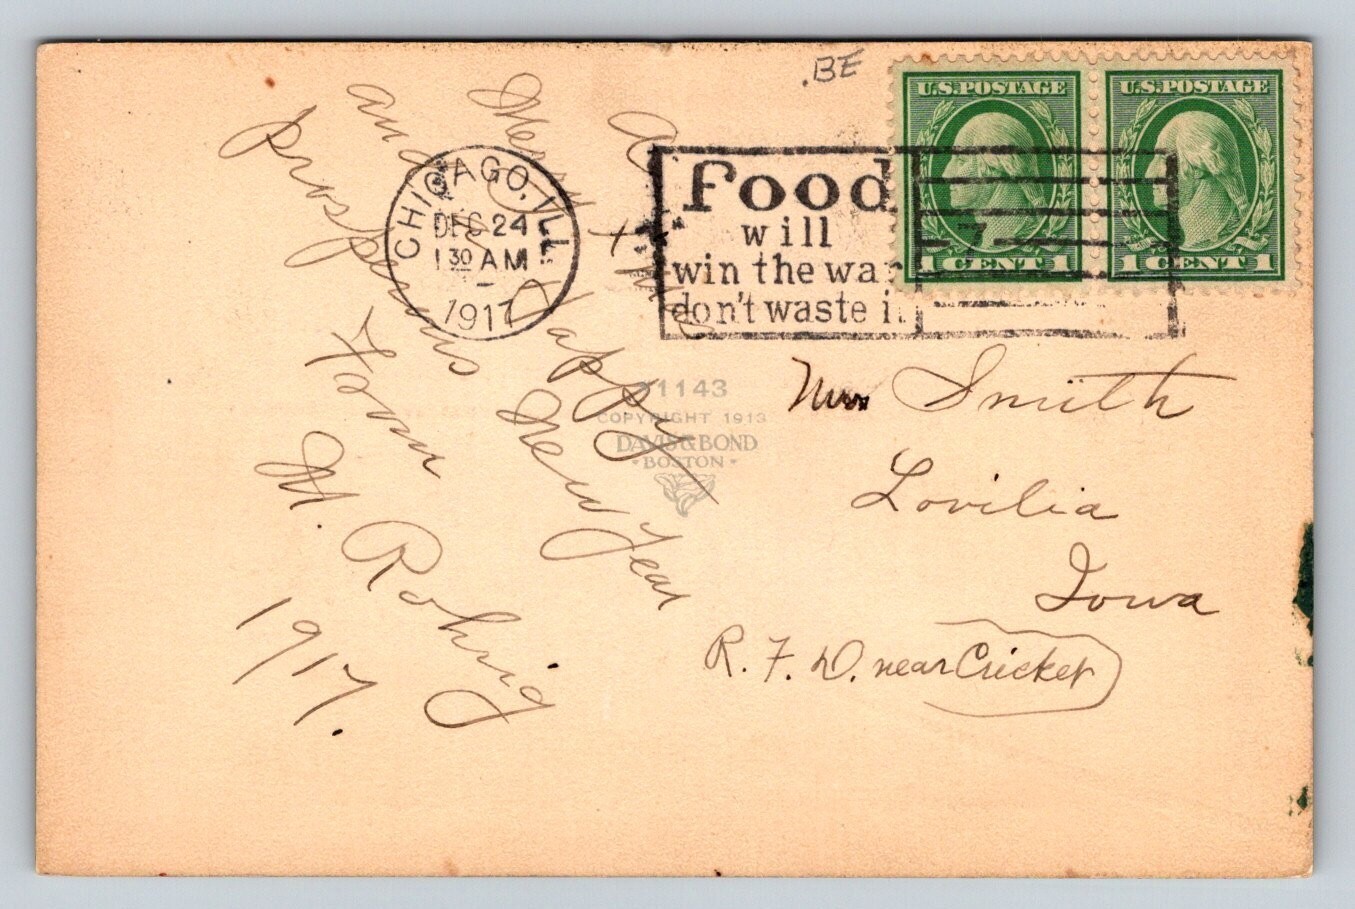 .BE
U.S.POSTAGE
1 CENT 1
U.S.POSTAGE
1 CENT 1
CHICAGO, ILL.
DEC 24
1 30 AM
1917
Food
will
win the war
don't waste it
7
A
Merry Xmas
and a Happy New Year
prosperous
From
M. Rohrig
1917.
21143
COPYRIGHT 1913
DAVIS & BOND
• BOSTON •
Mrs Smith
Lovilia
Iowa
R. F. D. near Cricket